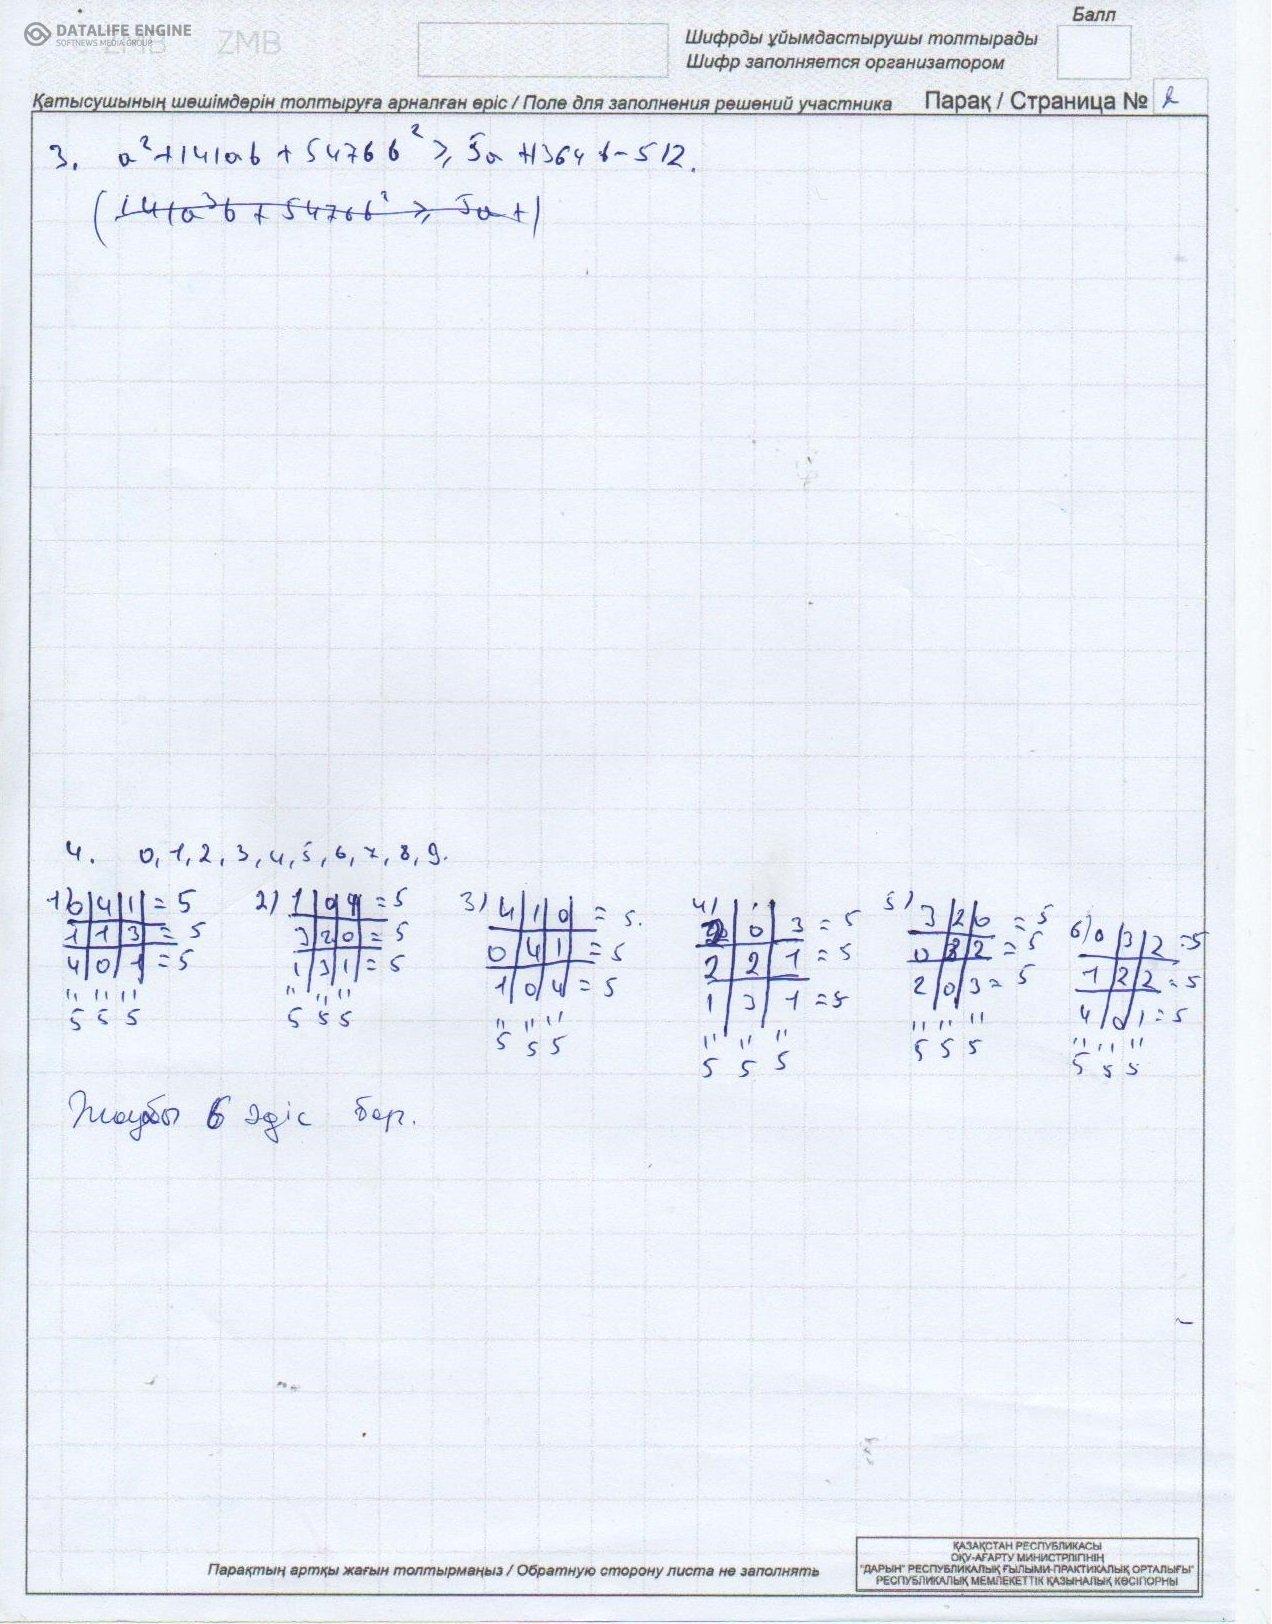 DATALIFE ENGINE
SOFTNEWS MEDIA GROUP
ZMB
Балл
Шифрды ұйымдастырушы толтырады
Шифр заполняется организатором
Қатысушының шешімдерін толтыруға арналған өріс / Поле для заполнения решений участника Парақ / Страница № 2
3. a²+141ab + 5476b² ≥ 5a + 1364b - 512.
(141a²b + 5476b² ≥ 5a + )
4. 0, 1, 2, 3, 4, 5, 6, 7, 8, 9.
1) 0|4|1 = 5
1|1|3 = 5
4|0|1 = 5
" " "
5 5 5
2) 1|0|4 = 5
3|2|0 = 5
1|3|1 = 5
" " "
5 5 5
3) 4|1|0 = 5.
0|4|1 = 5
1|0|4 = 5
" " "
5 5 5
4) 2|0|3 = 5
2|2|1 = 5
1|3|1 = 5
" " "
5 5 5
5) 3|2|0 = 5
0|3|2 = 5
2|0|3 = 5
" " "
5 5 5
6) 0|3|2 = 5
1|2|2 = 5
4|0|1 = 5
" " "
5 5 5
Жауабы 6 әдіс бар.
Парақтың артқы жағын толтырмаңыз / Обратную сторону листа не заполнять
ҚАЗАҚСТАН РЕСПУБЛИКАСЫ
ОҚУ-АҒАРТУ МИНИСТРЛІГІНІҢ
"ДАРЫН" РЕСПУБЛИКАЛЫҚ ҒЫЛЫМИ-ПРАКТИКАЛЫҚ ОРТАЛЫҒЫ"
РЕСПУБЛИКАЛЫҚ МЕМЛЕКЕТТІК ҚАЗЫНАЛЫҚ КӘСІПОРНЫ